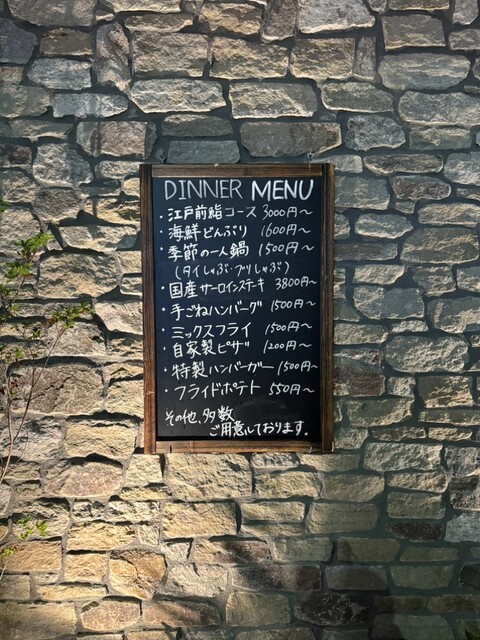 DINNER MENU
・江戸前鮨コース 3000円～
・海鮮どんぶり 1600円～
・季節の一人鍋 1500円～
(タイしゃぶ・ブリしゃぶ)
・国産サーロインステーキ 3800円～
・手ごねハンバーグ 1500円～
・ミックスフライ 1500円～
自家製ピザ 1200円～
・特製ハンバーガー 1500円～
・フライドポテト 550円～
その他、多数
ご用意しております。